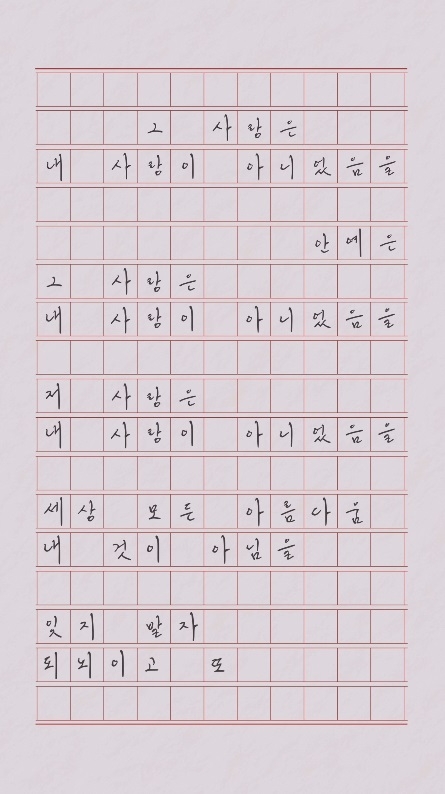 그 사랑은
내 사랑이 아니었음을
안예은
그 사랑은
내 사랑이 아니었음을
저 사랑은
내 사랑이 아니었음을
세상 모든 아름다움
내 것이 아님을
잊지 말자
되뇌이고 또